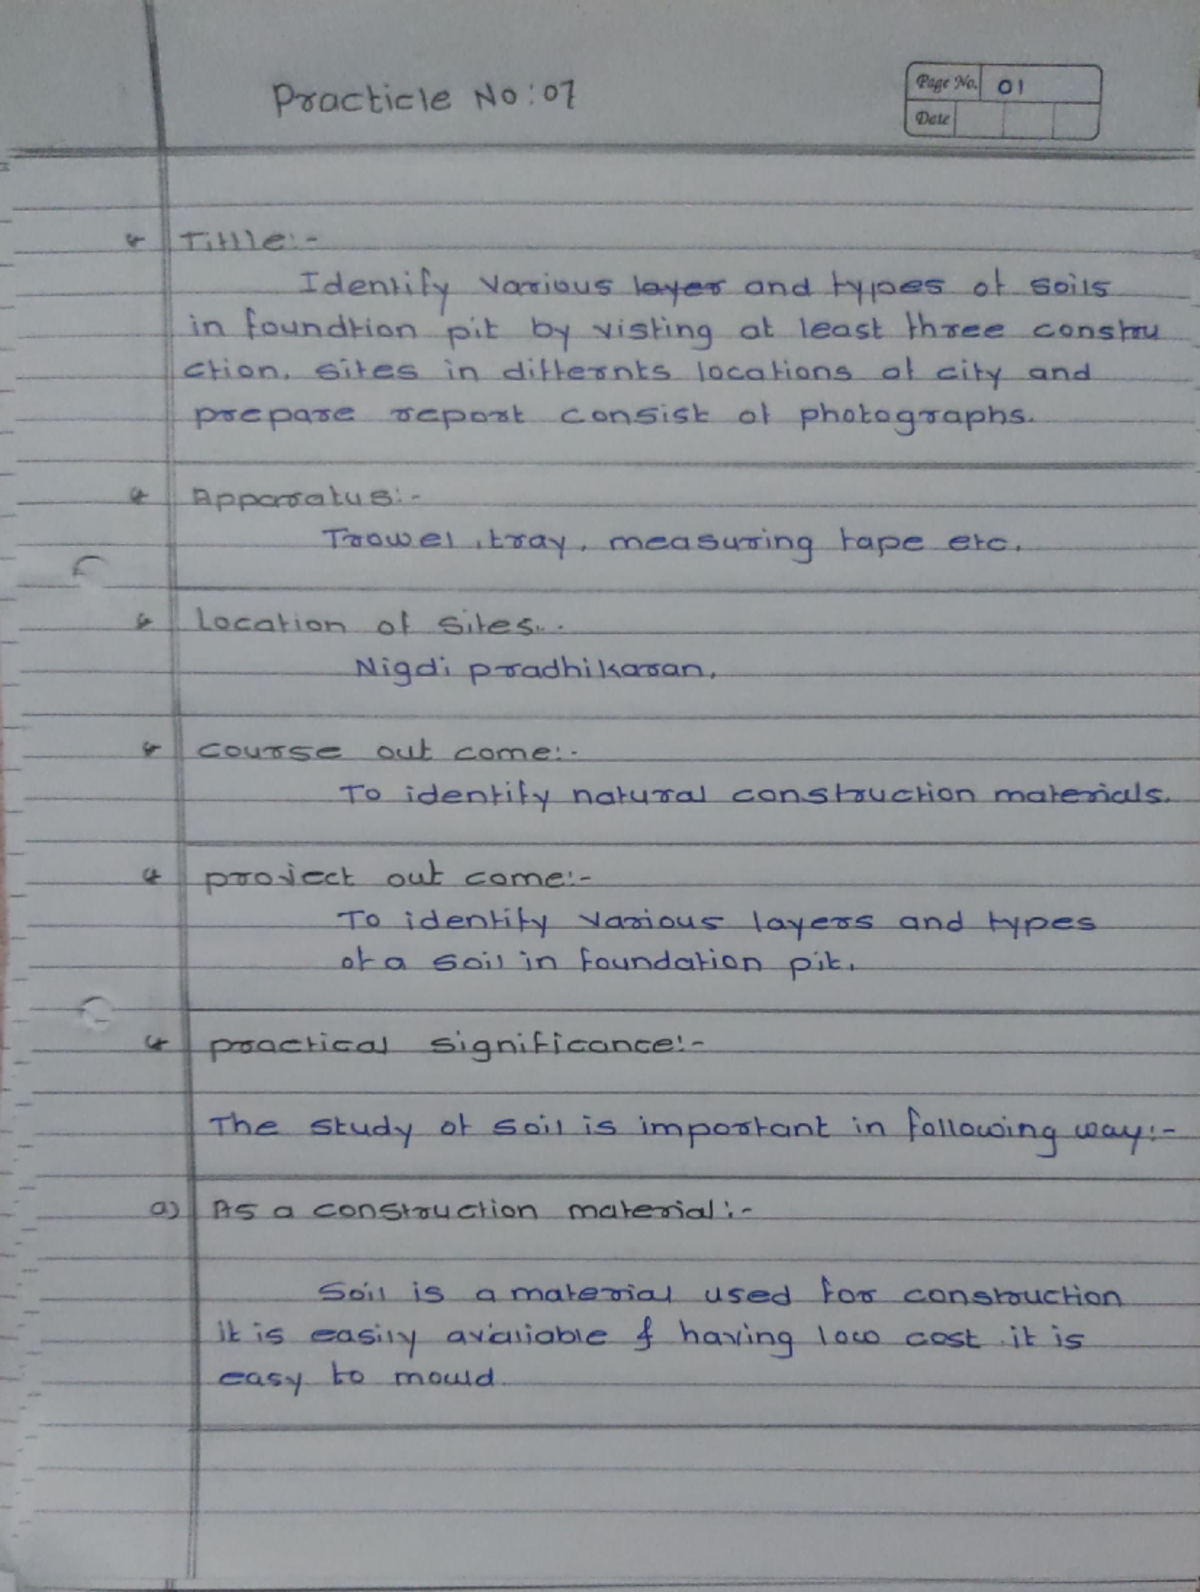 Practicle No:07
Page No. 01
Date
Tittle:-
Identify various layer and types of soils
in foundtion pit by visting at least three constru
ction. sites in differnts locations of city and
prepare report consist of photographs.
Apparatus:-
Trowel, tray, measuring tape etc.
Location of sites..
Nigdi pradhikaran.
course out come:-
To identify natural construction materials.
project out come:-
To identify various layers and types
of a soil in foundation pit.
practical significance:-
The study of soil is important in following way:-
a) As a construction material:-
Soil is a material used for construction
it is easily avaliable & having low cost. it is
easy to mould